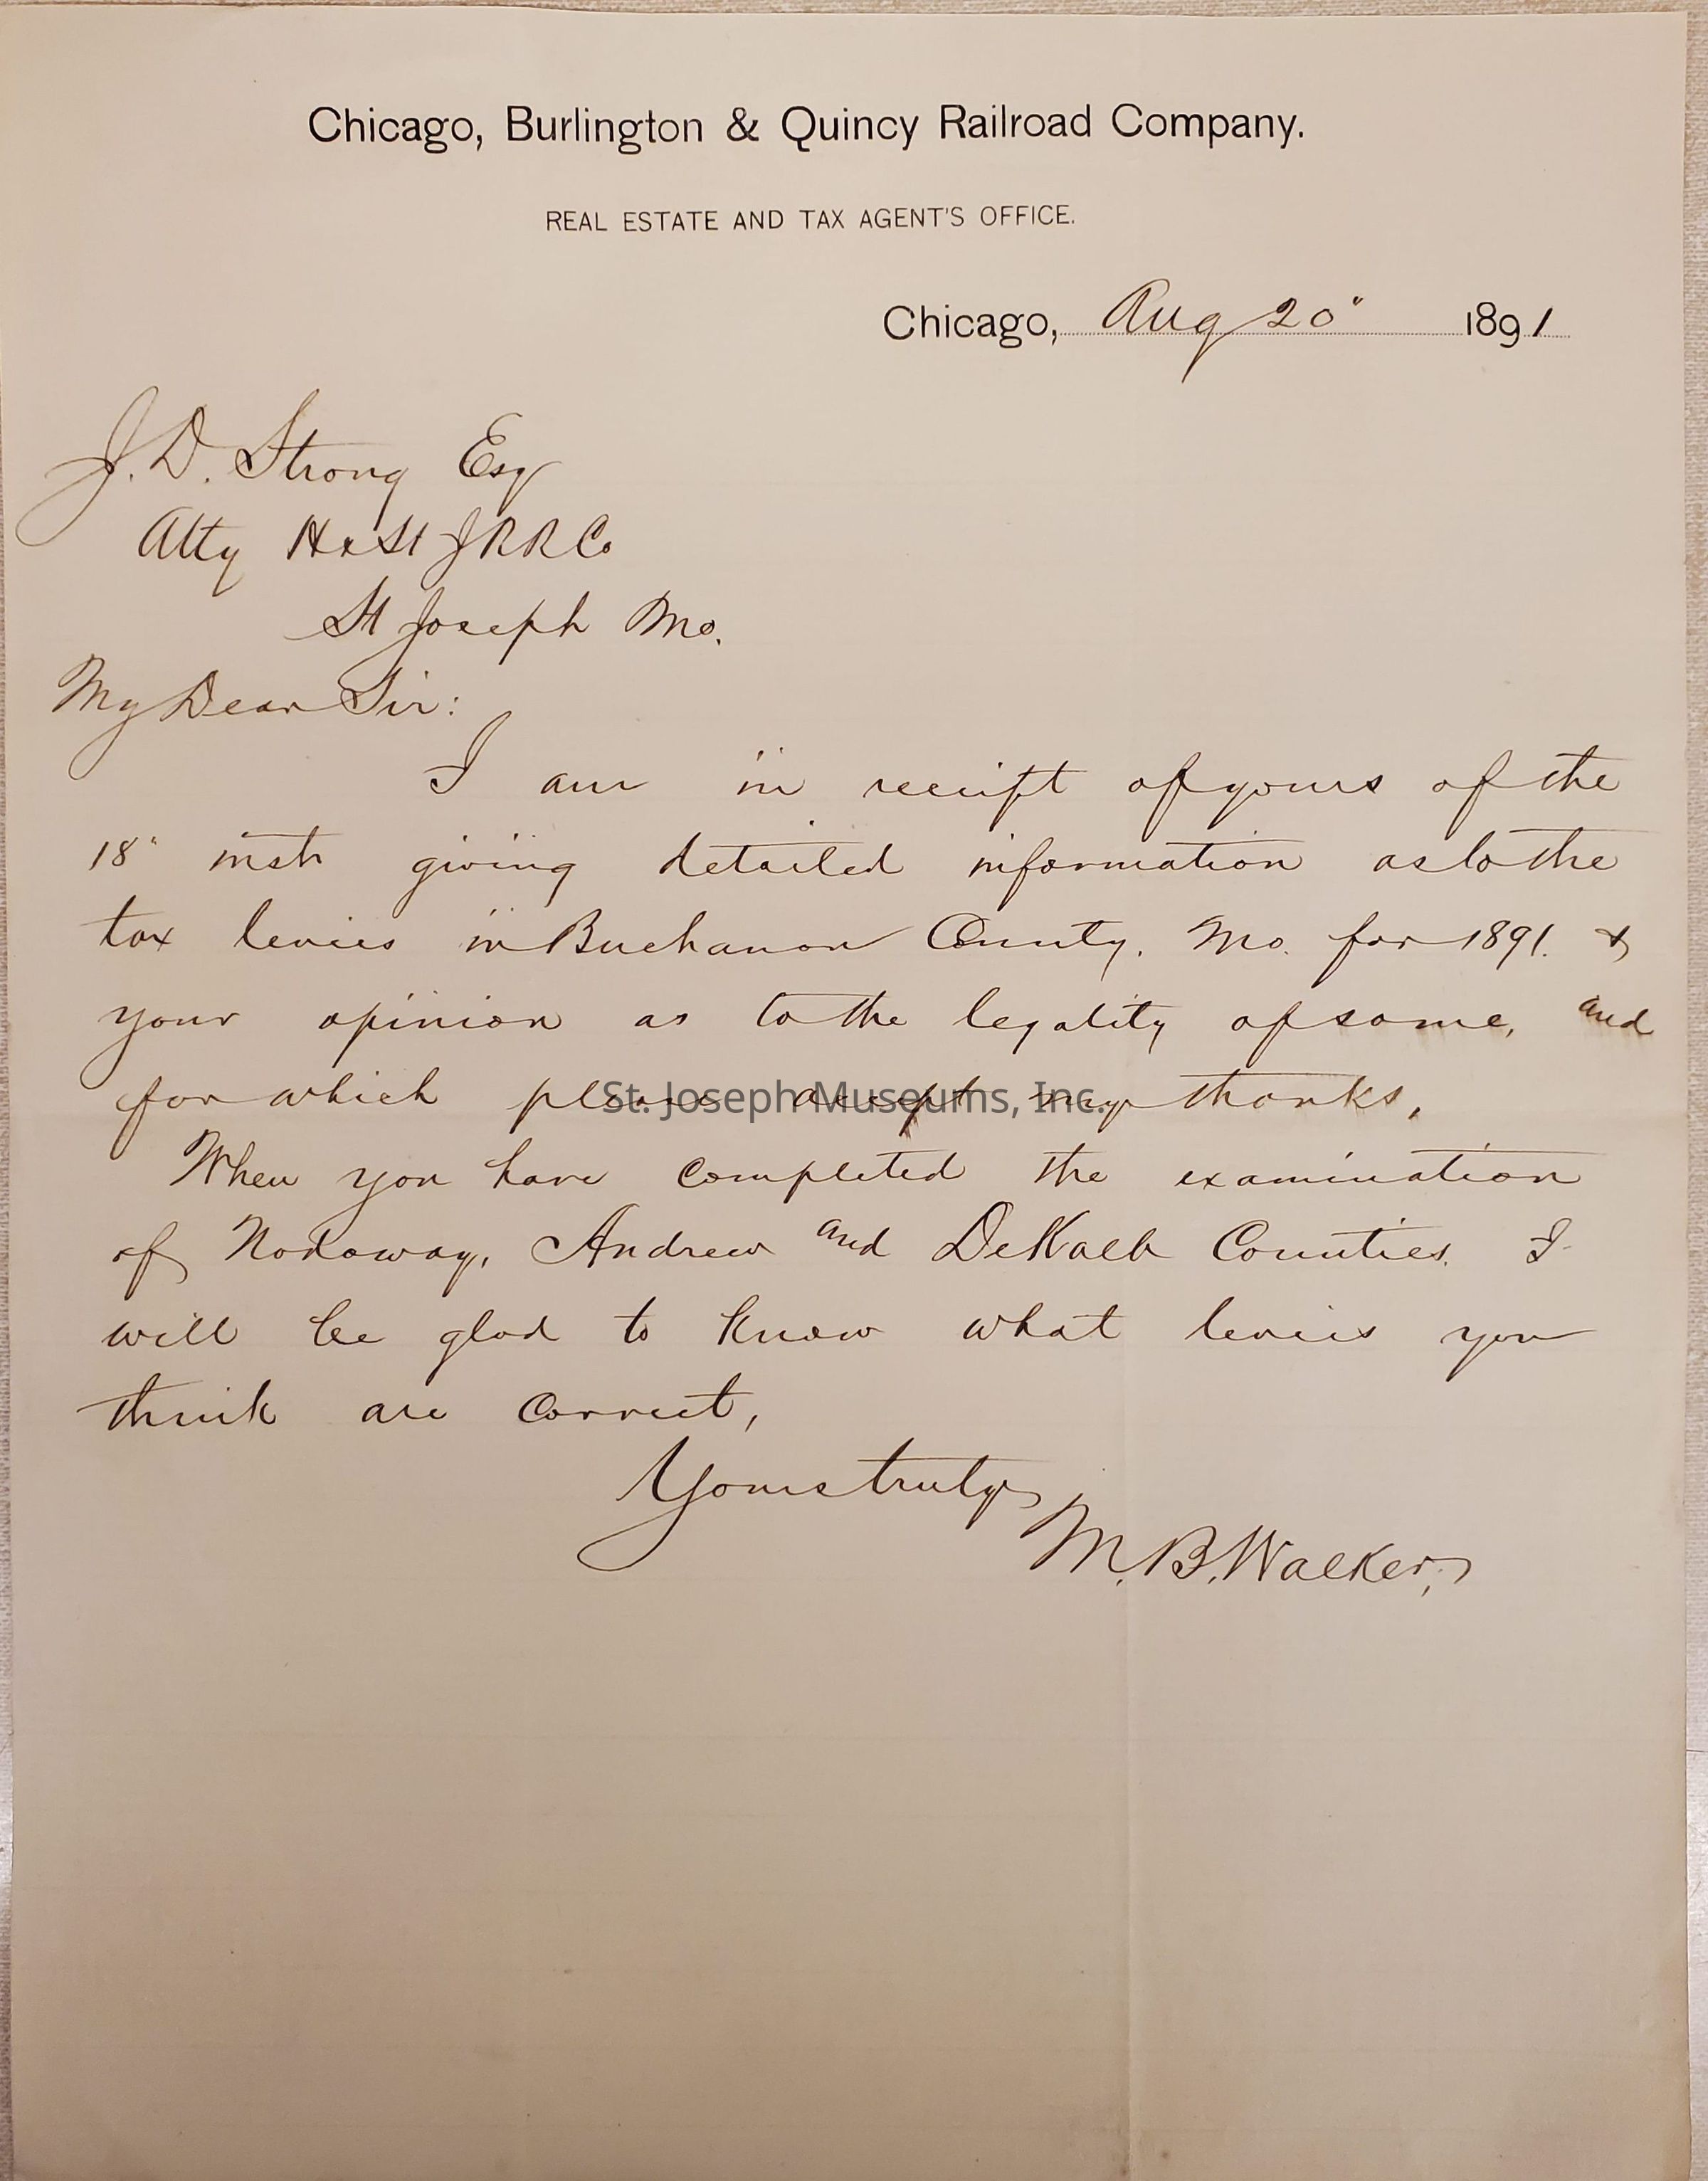 Chicago, Burlington & Quincy Railroad Company.
REAL ESTATE AND TAX AGENT'S OFFICE.
Chicago, Aug 20" 1891
J. D. Strong Esq
Atty H & St J R R Co
St Joseph Mo.
My Dear Sir:
I am in receipt of yours of the
18" inst giving detailed information as to the
tax levies in Buchanan County, Mo. for 1891. &
your opinion as to the legality of same, and
for which please accept my thanks.
St. Joseph Museums, Inc.
When you have completed the examination
of Nodaway, Andrew and DeKalb Counties. I
will be glad to know what levies you
think are correct,
Yours truly,
M. B. Walker,